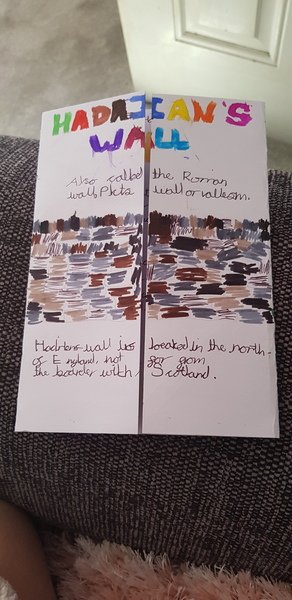 HADRIAN'S
WALL
Also called the Roman
wall, Picts wall or vallum.
Hadrians wall is located in the north-
of England, not far from
the boarder with Scotland.